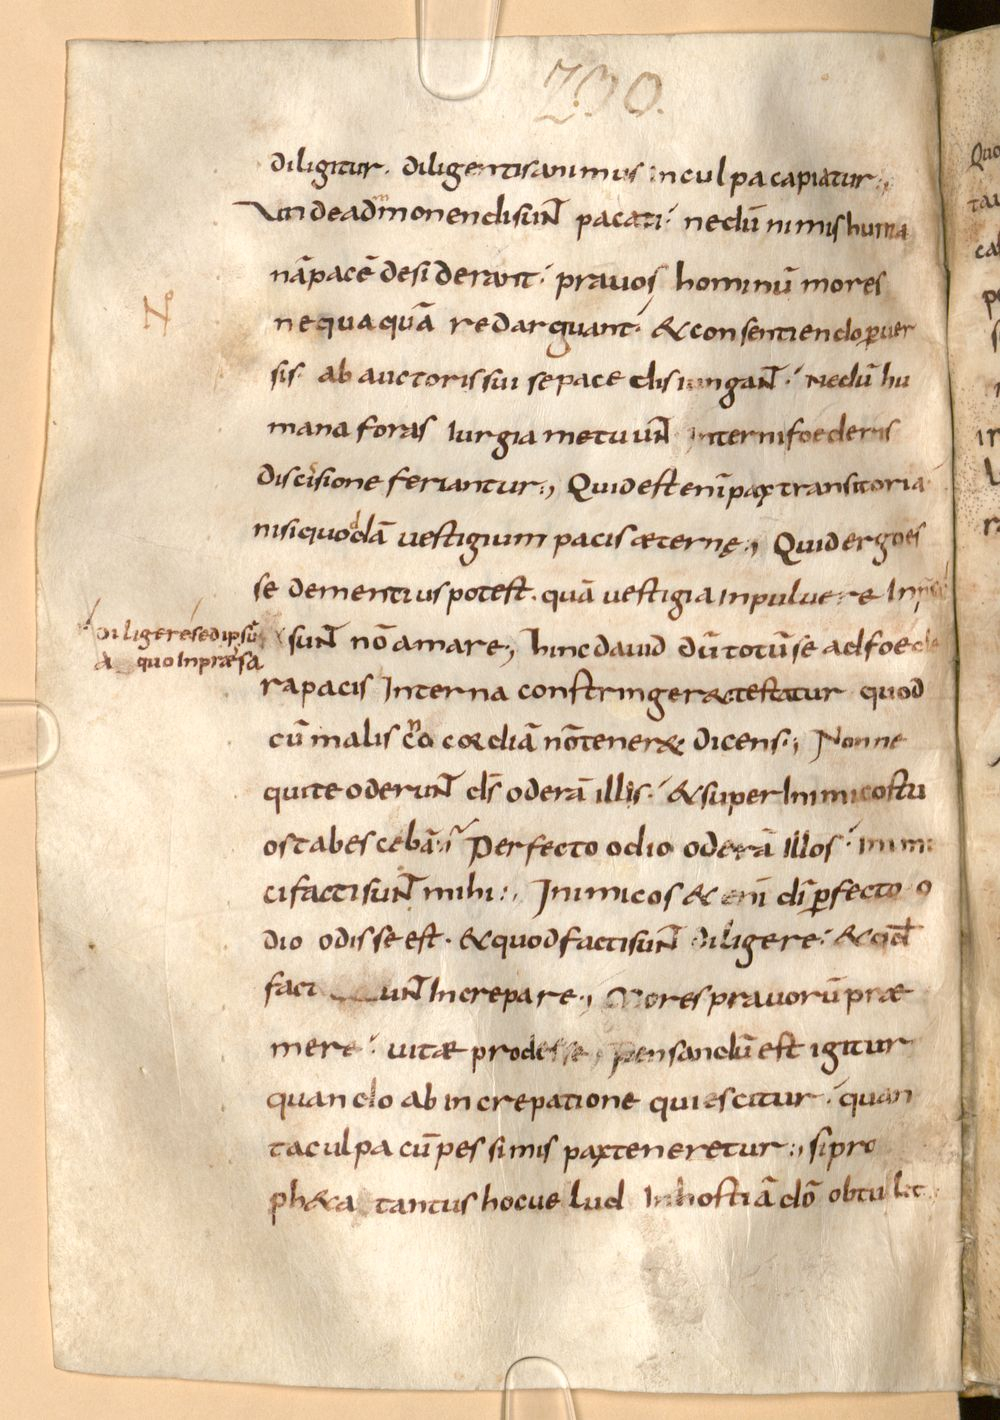 200.
diligitur. diligentis animus in culpa capiatur;,
Unde adm̄onendi sunt̄ pacati. ne dū nimis huma
nā pacē desiderant. pravos hominū mores
N
nequaquā redarguant. & consentiendo ꝑver
sis. ab auctoris sui se pace disiungant̄. Ne dū hu
mana foras iurgia metuunt̄ interni foederis
discisione feriantur;, Quid est enī pax transitoria
nisi quoddā vestigium pacis æternę;, Quid ergo es
se dementius potest. quā vestigia in pulvere
diligere sed ipsū
a quo inpræssa
sunt̄ nō amare;, hinc david dū totū se ad foede
ra pacis interna constringer& testatur quod
cū malis cōcordiā nō tener& dicens;, Nonne
qui te oderunt̄ dn̄s oderā illis. & super inimicos tu
os tabescebā; Perfecto odio oderā illos. inimi
ci facti sunt̄ mihi;, Inimicos & enī dī ꝑfecto o
dio odisse est. & quod facti sunt̄ diligere. & qđ
faci unt̄ increpare;, Mores pravorū præ
mere. vitæ prodesse, Pensandū est igitur
quando ab increpatione quiescitur. quan
ta culpa cū pessimis pax teneretur;, si pro
ph&a tantus hoc velud in hostiā dō obtulit